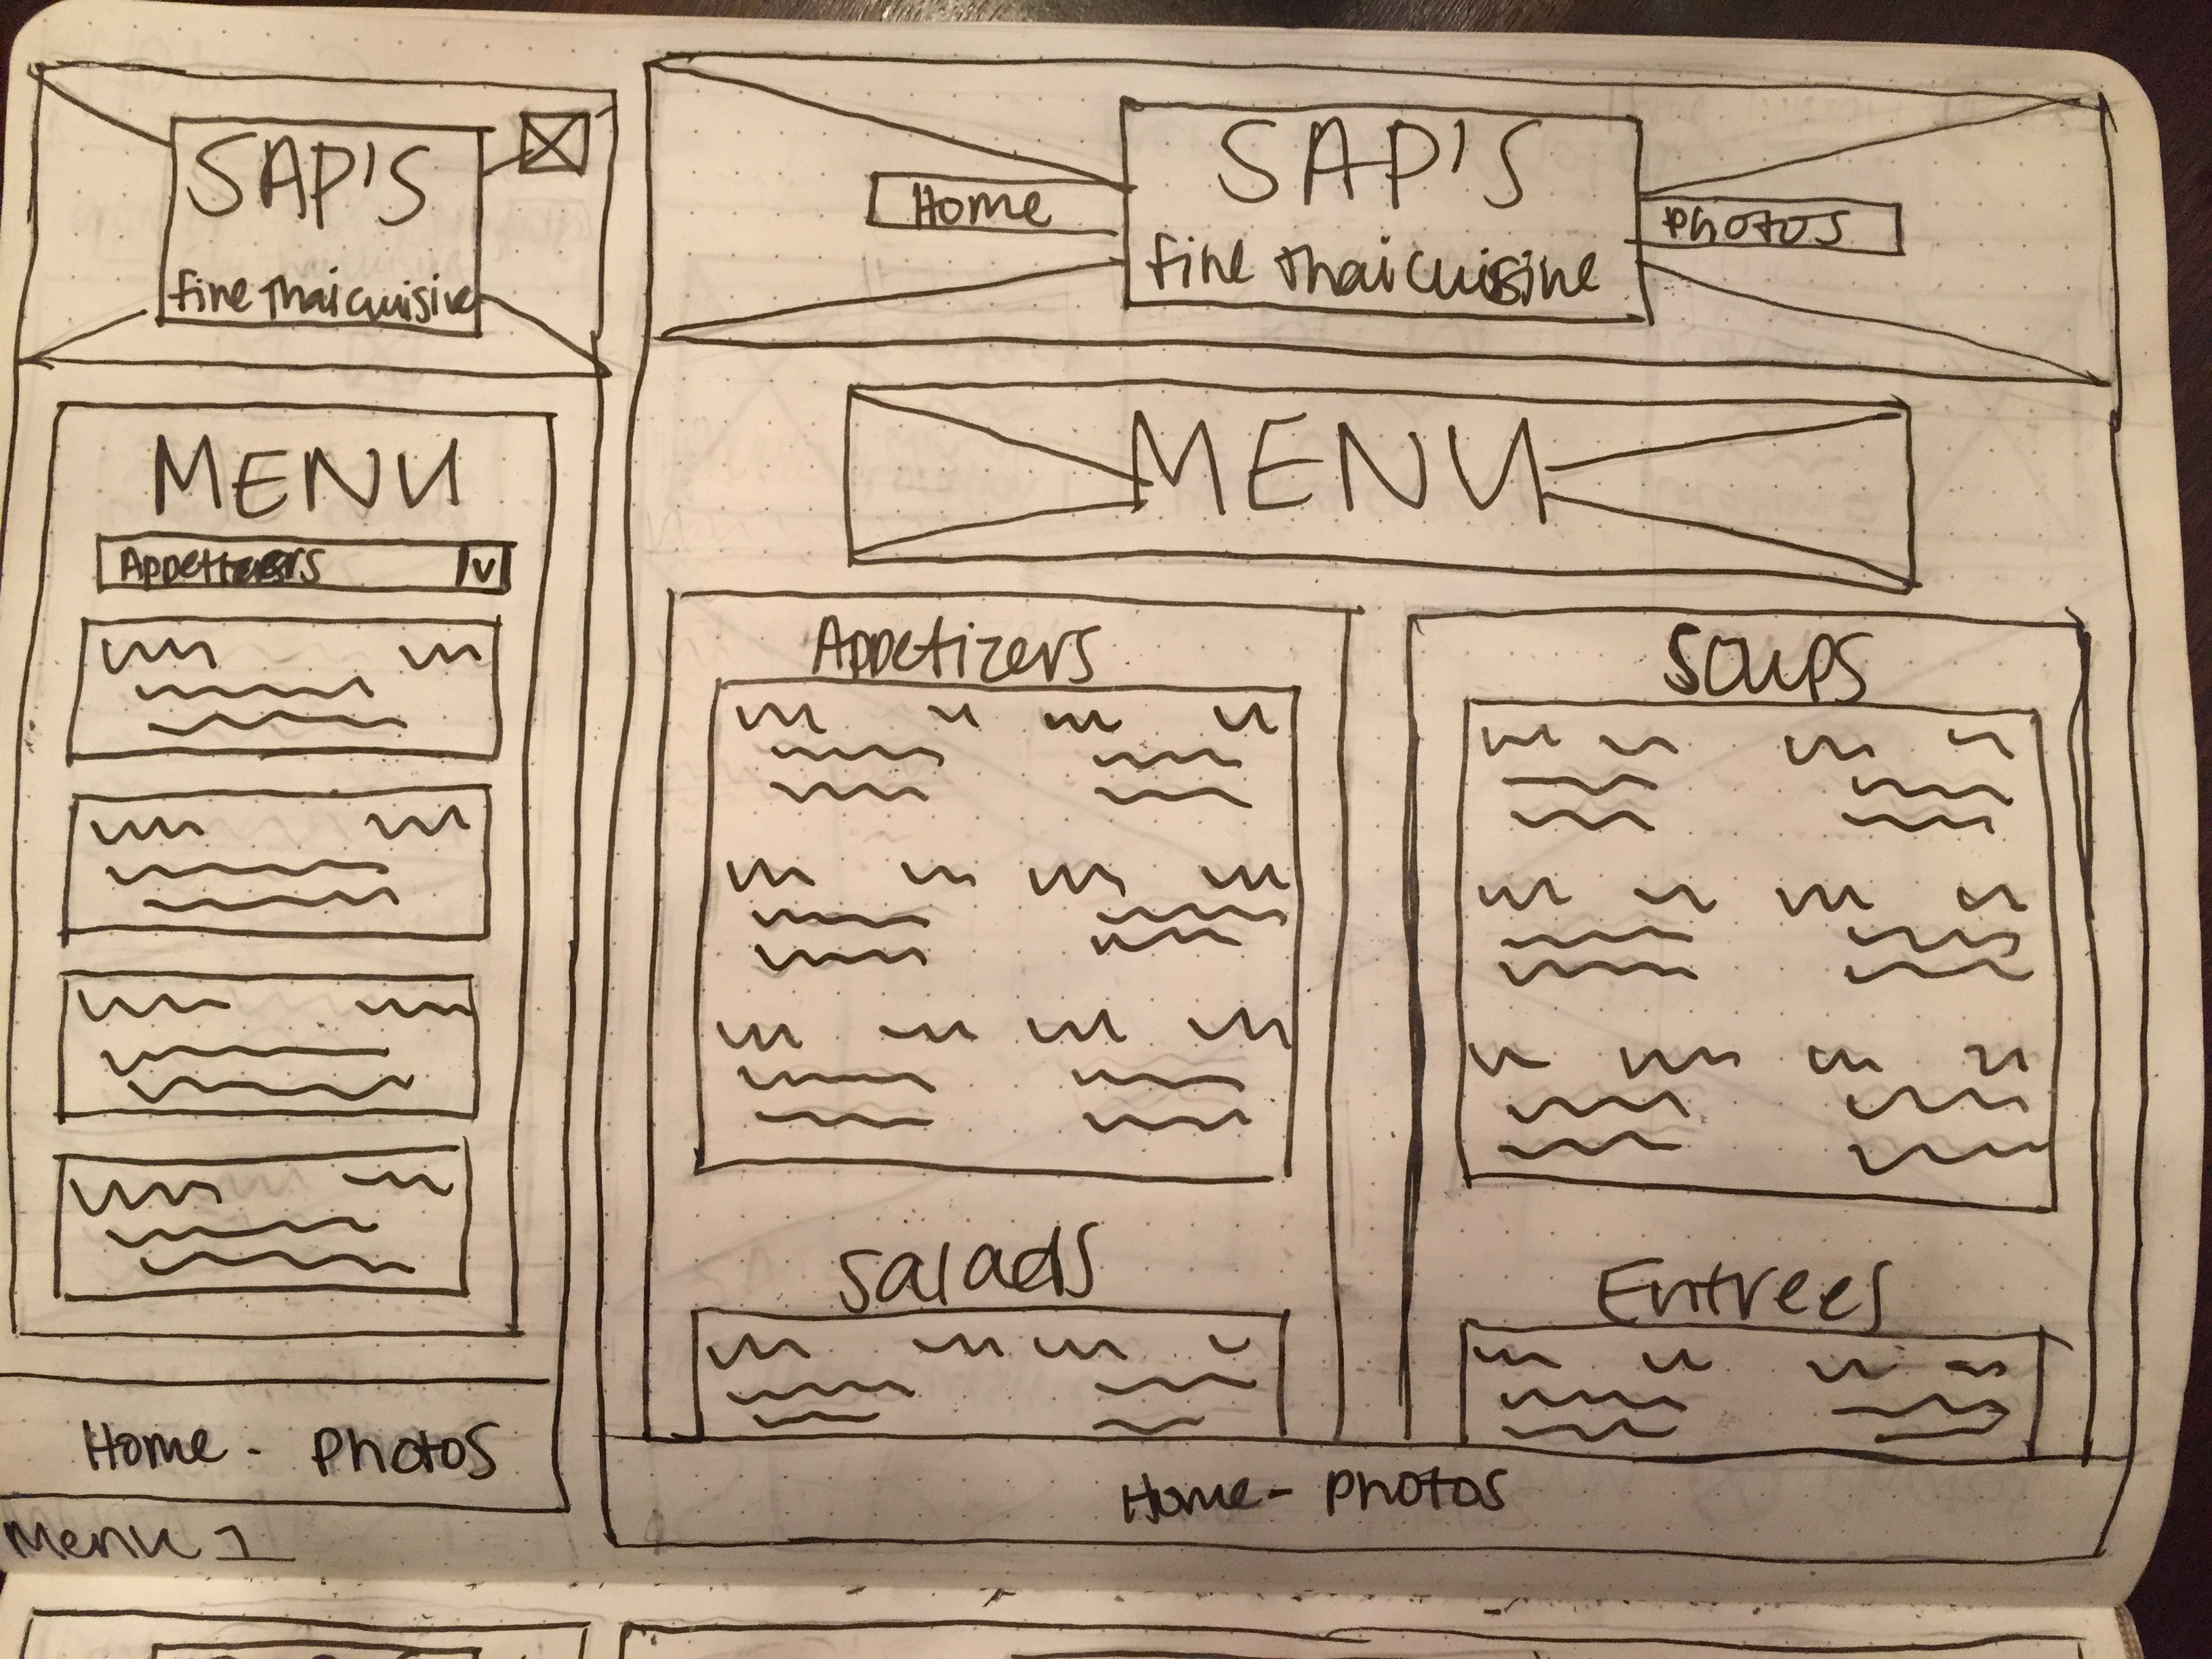 SAP'S
fine Thai cuisine
MENU
Appetizers
V
Home - Photos
Menu 1
Home
SAP'S
fine Thai cuisine
Photos
MENU
Appetizers
Soups
Salads
Entrees
Home - Photos